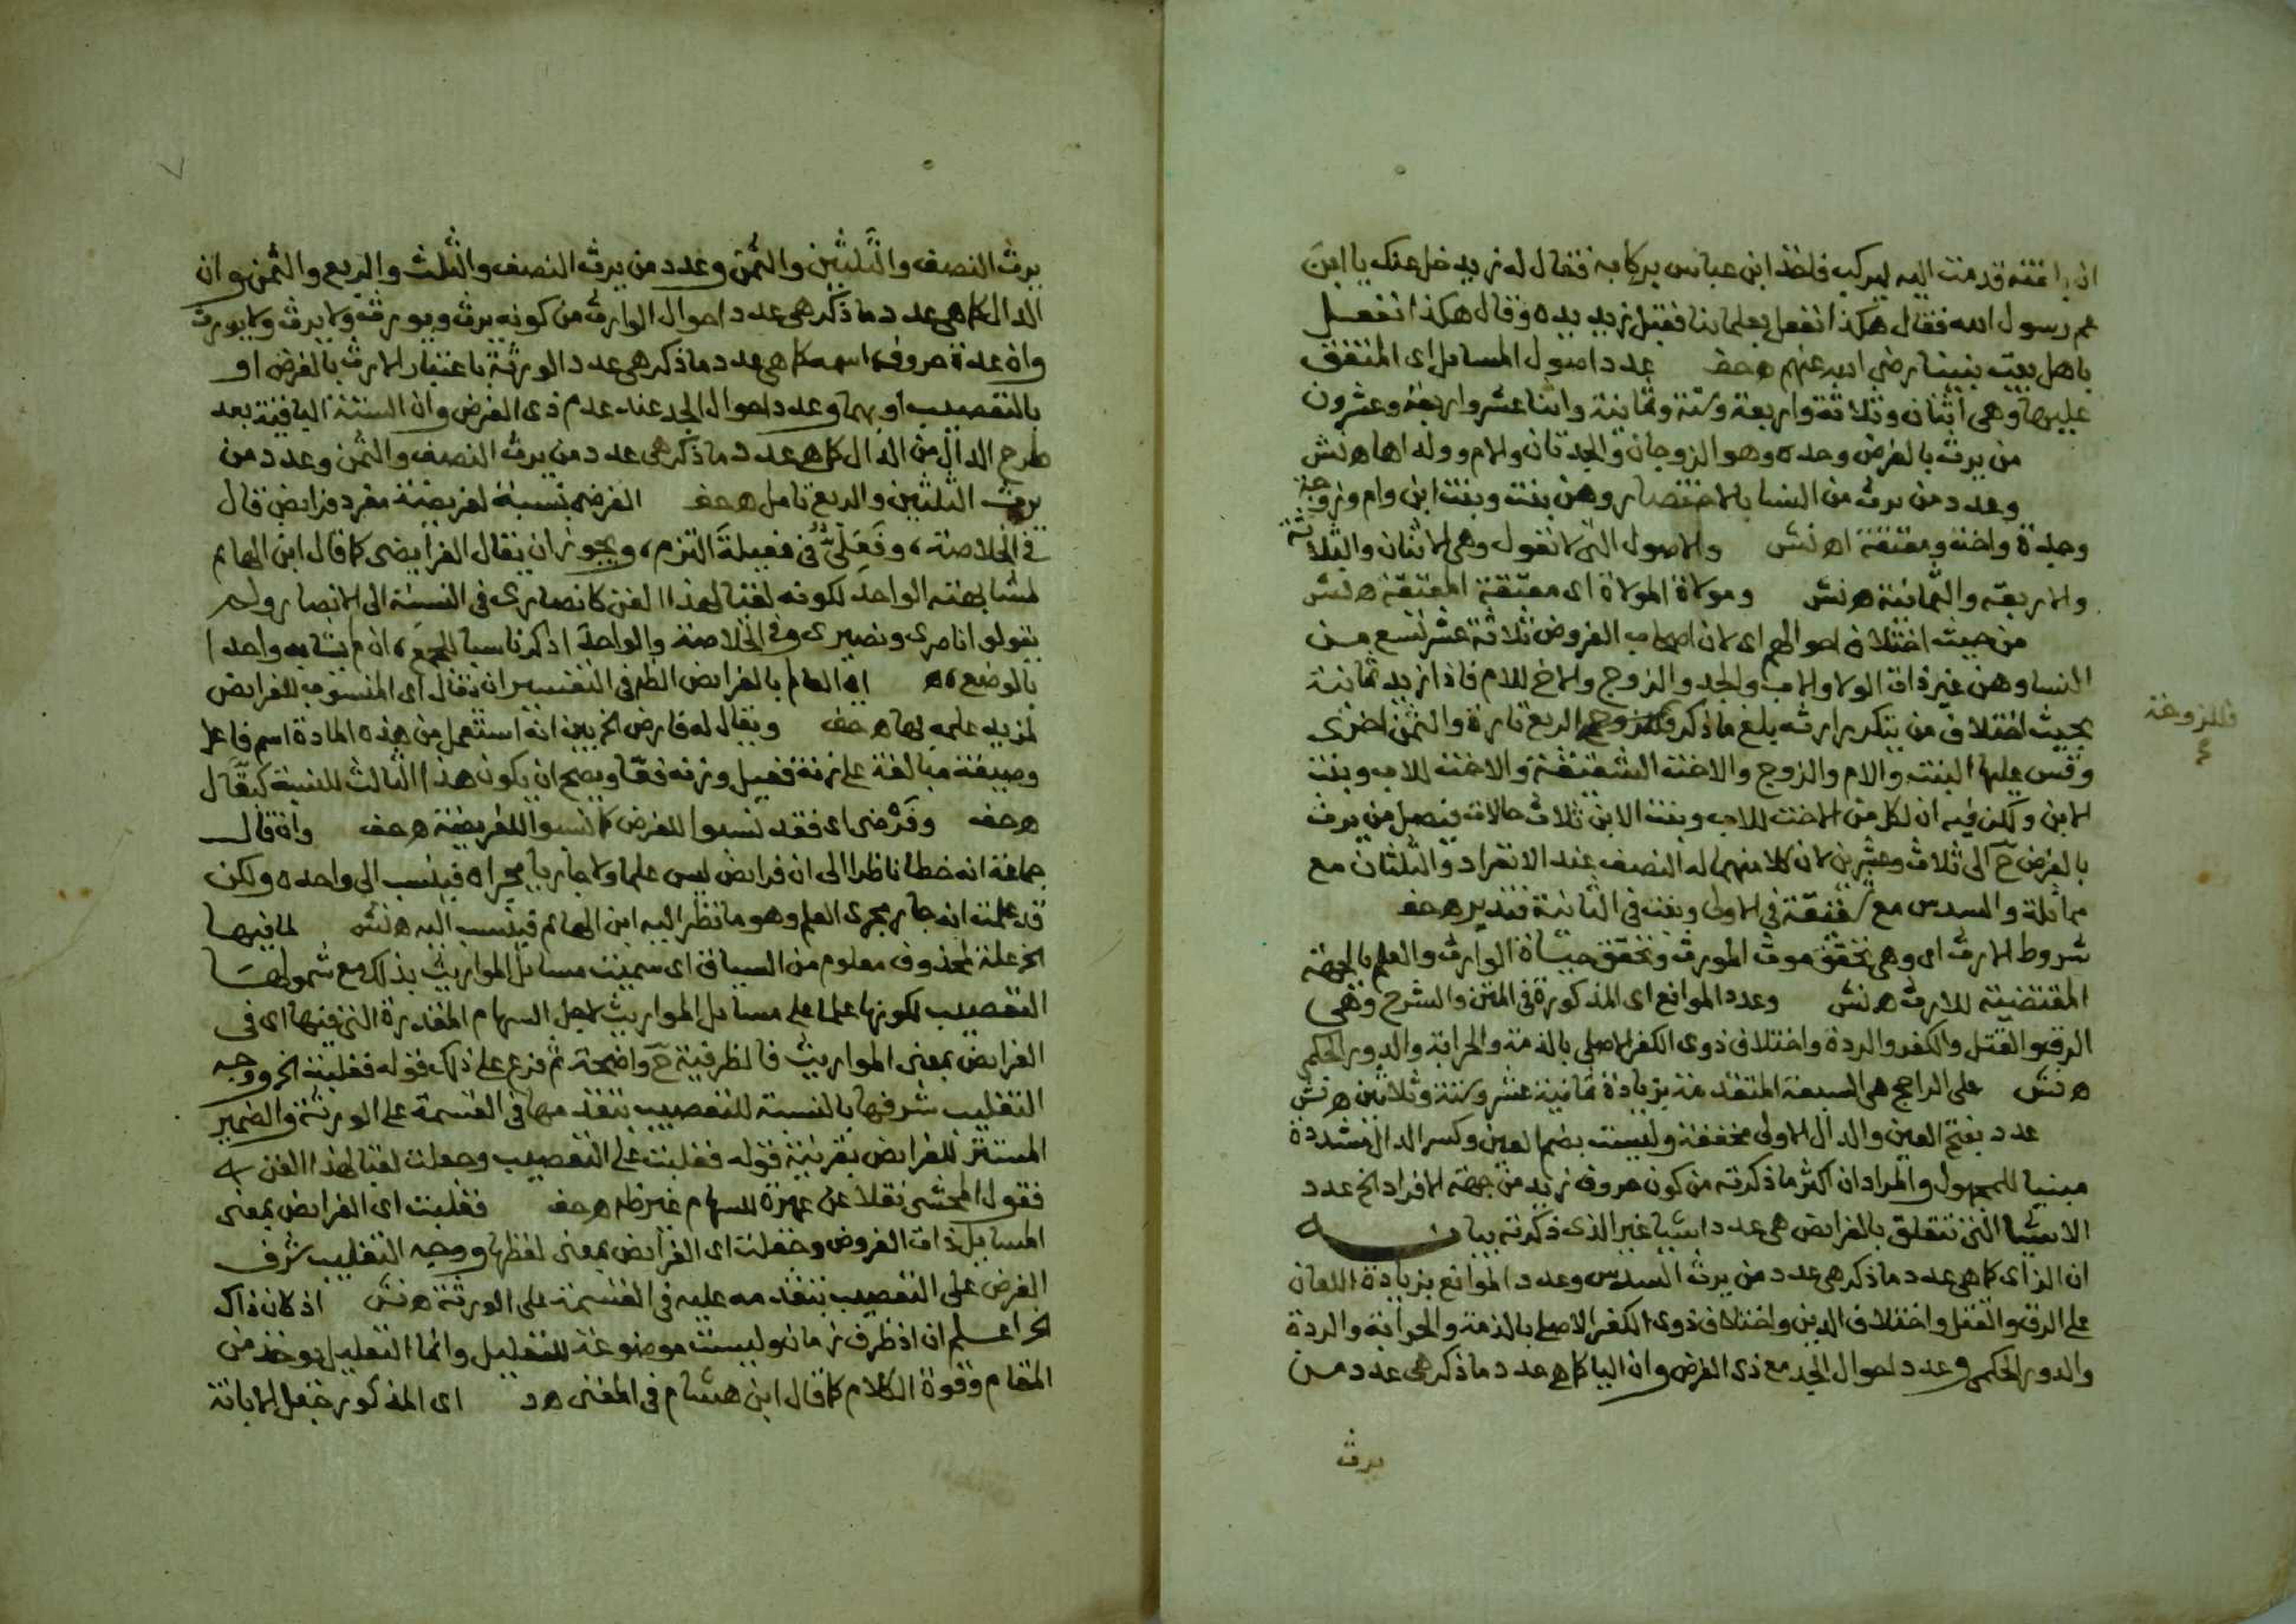 ان بغلته قدمت اليه ليركب فاخذ ابن عباس بركابه فقال له زيد خل عنك يا ابن
عم رسول الله فقال هكذا نفعل بعلمائنا فقبل زيد يده وقال هكذا نفعل
باهل بيت نبينا رضي الله عنهم هحف عدد اصول المسايل اى المتفق
عليها وهى اثنان وثلاثة واربعة وستة وثمانية واثنا عشر واربعة وعشرون
من يرث بالفرض وحده وهو الزوجان والجدتان والام وولداها هنش
وعدد من يرث من النسا بالاختصار وهن بنت وبنت ابن وام وزوجة
وجدة واخت ومعتقة اهنش والاصول التى لا تعول وهى الاثنان والثلاثة
والاربعة والثمانية هنش ومولاة المولاة اى معتقة المعتقة هنش
من حيث اختلاف احوالهم اى لان اصحاب الفروض ثلاثة عشر تسع من
النسا وهن غير ذات الولا والاب والجد والزوج والاخ للام فاذا زيد ثمانية
بحيث اختلاف من يتكرر ارثه بلغ ماذكر فللزوجة الربع تارة والثمن اخرى
وقس عليها البنت والام والزوج والاخت الشقيقة والاخت للاب وبنت
الابن ولكن فيه ان لكل من الاخت للاب وبنت الابن ثلاث حالات فيصل من يرث
بالفرض ح الى ثلاث وعشرين لان كلا منهما له النصف عند الانفراد والثلثان مع
مماثلة والسدس مع شقيقة في الاولى وبنت في الثانية فتدبر هحف
شروط الارث اى وهى تحقق موت المورث وتحقق حياة الوارث والعلم بالجهة
المقتضية للارث هنش وعدد الموانع اى المذكورة في المتن والشرح وهى
الرق والقتل والكفر والردة واختلاف ذوى الكفر الاصلى بالذمة والحرابة والدور الحكمى
هنش على الراجح هى السبعة المتقدمة بزيادة ثمانية عشر وستة وثلاثين هنش
عدد بفتح العين والدال الاولى مخففة وليست بضم العين وكسر الدال مشددة
مبنيا للمجهول والمراد ان اكثر ماذكرته من كون حروف زيد من جهة الافراد الخ عدد
الاشيا التى تتعلق بالفرايض هى عدد اشيا غير الذى ذكرته بيانه
ان الزاى كما هى عدد ماذكر هى عدد من يرث السدس وعدد الموانع بزيادة اللعان
على الرق والقتل واختلاف الدين واختلاف ذوى الكفر الاصلى بالذمة والحرابة والردة
والدور الحكمى وعدد احوال الجد مع ذى الفرض وان اليا كما هى عدد ماذكر هى عدد من
يرث
فللزوجة
يرث النصف والثلثين والثمن وعدد من يرث النصف والثلث والربع والثمن وان
الدال كما هى عدد ماذكر هى عدد احوال الوارث من كونه يرث ويورث ولا يرث ولا يورث
وان عدة حروف اسمه كما هى عدد ماذكر هى عدد الورثة باعتبار الارث بالفرض او
بالتعصيب او بهما وعدد احوال الجد عند عدم ذى الفرض وان الستة الباقية بعد
طرح الدال من الدال كما هى عدد ماذكر هى عدد من يرث النصف والثمن وعدد من
يرث الثلثين والربع تامل هحف الفرضى نسبة لفريضة مفرد فرايض قال
في الخلاصة، وفَعَلِىٌّ في فعيلةَ التزم، ويجوز ان يقال الفرايضى كما قال ابن الهايم
لمشابهته الواحد لكونه لقبا لهذا الفن كانصارى في النسبة الى الانصار ولم
يقولو اناصرى ونصيرى وفي الخلاصة والواحد اذكر ناسبا للجمع، ان لم يشابه واحدا
بالوضع، اه اى العالم بالفرايض الظهر في التفسير ان يقال اى المنسوب للفرايض
لمزيد علمه بها هحف ويقال له فارض الخ بين انه استعمل من هذه المادة اسم فاعل
وصيغة مبالغة على زنة فعيل وزنة فعّال ويصح ان يكون هذا الثالث للنسبة كبقّال
هحف وفَرْضى اى فقد نسبوا للفرض كما نسبوا للفريضة هحف وان قال
جماعة انه خطا ناظرا الى ان فرايض ليس علما ولا جاريا مجراه فينسب الى واحده ولكن
قد علمت انه جار مجرى العلم وهو ما نظر اليه ابن الهايم فينسب اليه هنش لما فيها
الخ علة لمحذوف معلوم من السياق اى سميت مسايل المواريث بذلك مع شمولها
التعصيب لكونها علما على مسايل المواريث لاجل السهام المقدرة التى فيها اى في
الفرايض بمعنى المواريث فالظرفية ح واضحة ثم فرع على ذلك قوله فغلبت الخ ووجه
التغليب شرفها بالنسبة للتعصيب بتقدمها في القسمة على الورثة والضمير
المستتر للفرايض بقرينة قوله فغلبت على التعصيب وجعلت لقبا لهذا الفن
فقول المحشى نقلا عن عميرة للسهام غير ظاهر هحف فغلبت اى الفرايض بمعنى
المسايل ذات الفروض وجعلت اى الفرايض بمعنى لفظها ووجه التغليب شرف
الفرض على التعصيب بتقدمه عليه في القسمة على الورثة هنش اذ كان ذاك
الخ اعلم ان اذ ظرف زمان وليست موضوعة للتعليل وانما التعليل يوخذ من
المقام وقوة الكلام كما قال ابن هشام في المغنى هد اى المذكور جعل الابانة